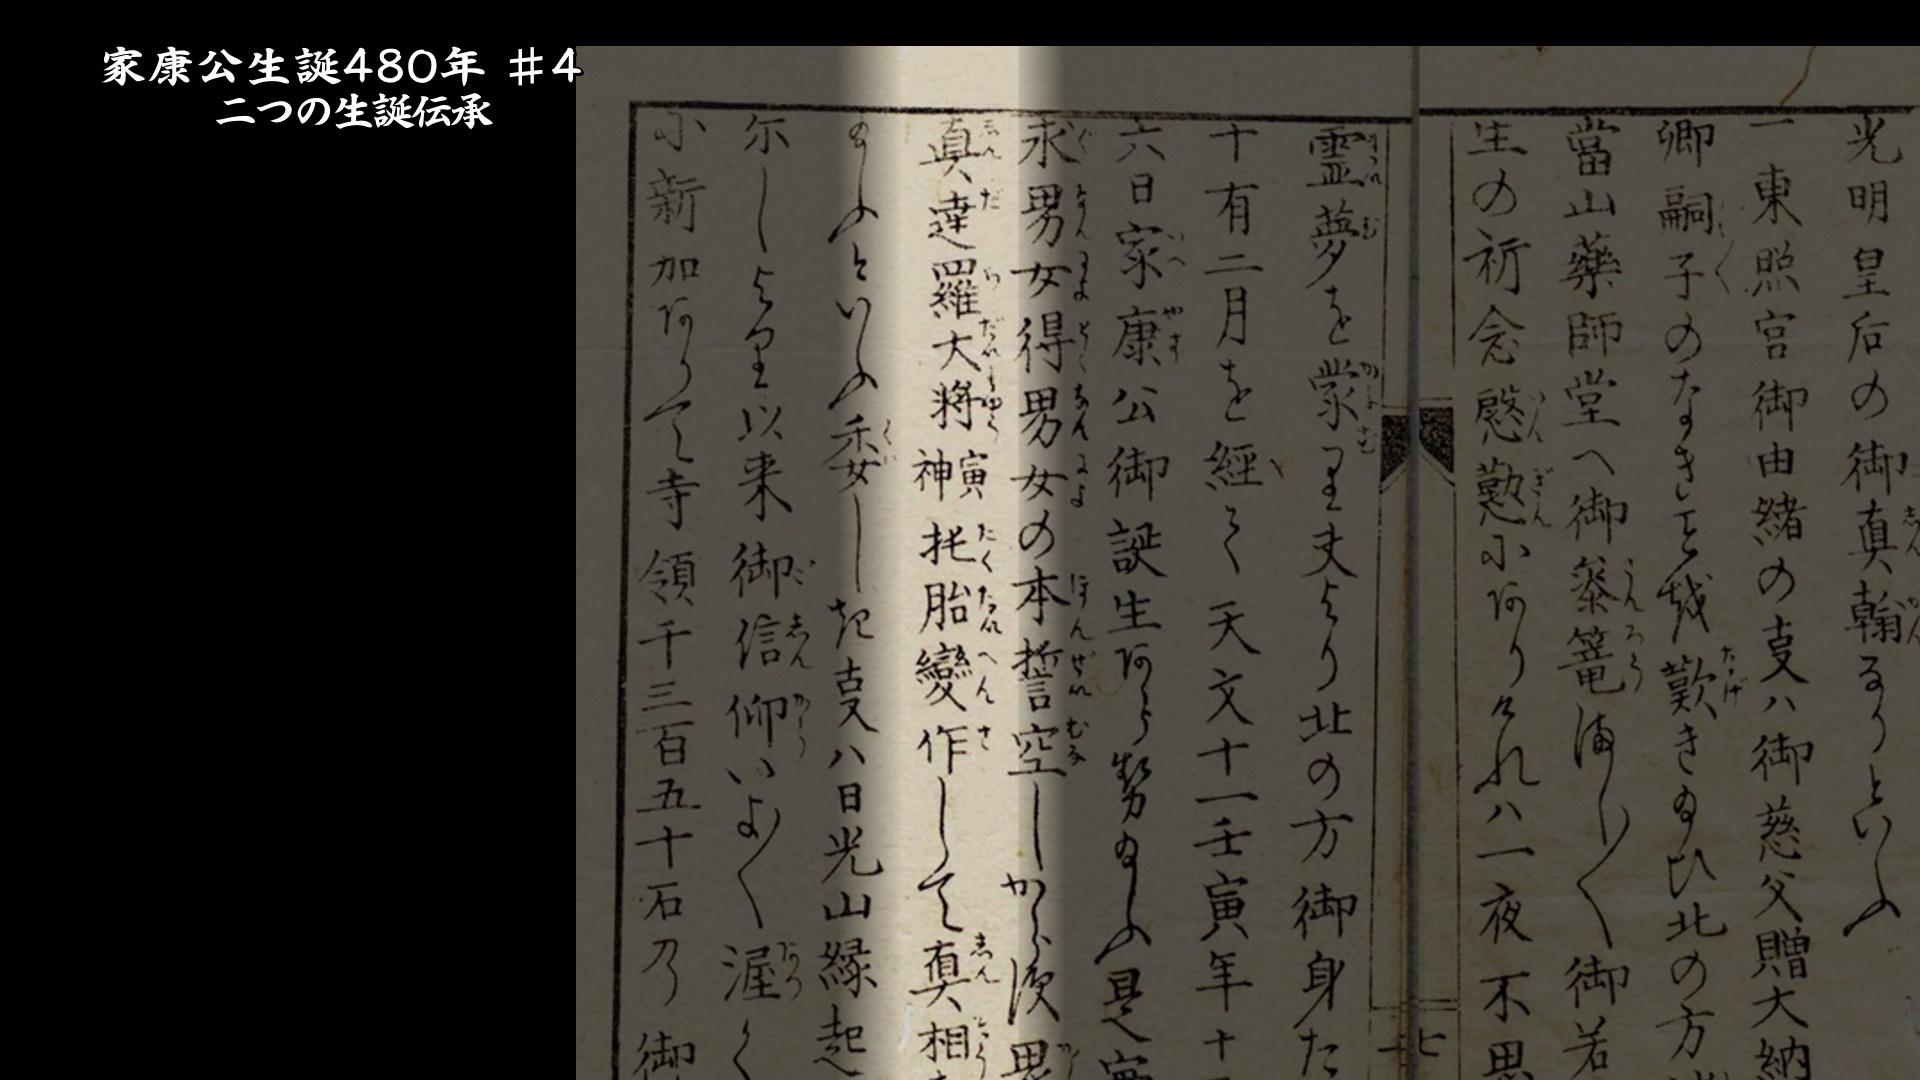 家康公生誕480年 #4
二つの生誕伝承
光明皇后の御真翰なりといふ
一東照宮御由緒の叓ハ御慈父贈大納
卿嗣子のなきこと越歎き給ひ北の方
當山藥師堂へ御叅篭満し〱御若
生の祈念慇懃にありけれハ一夜不思
霊夢を蒙り夫より北の方御身た
十有二月を經て天文十一壬寅年十
六日家康公御誕生あら勢給ふ是寅
求男女得男女の本誓空しから須
真達羅大将寅神托胎變作して真相
まふといふ委しき叓ハ日光山縁起
尓しより以来御信仰いよ〱渥く
小新加ありて寺領千三百五十石乃御
十七